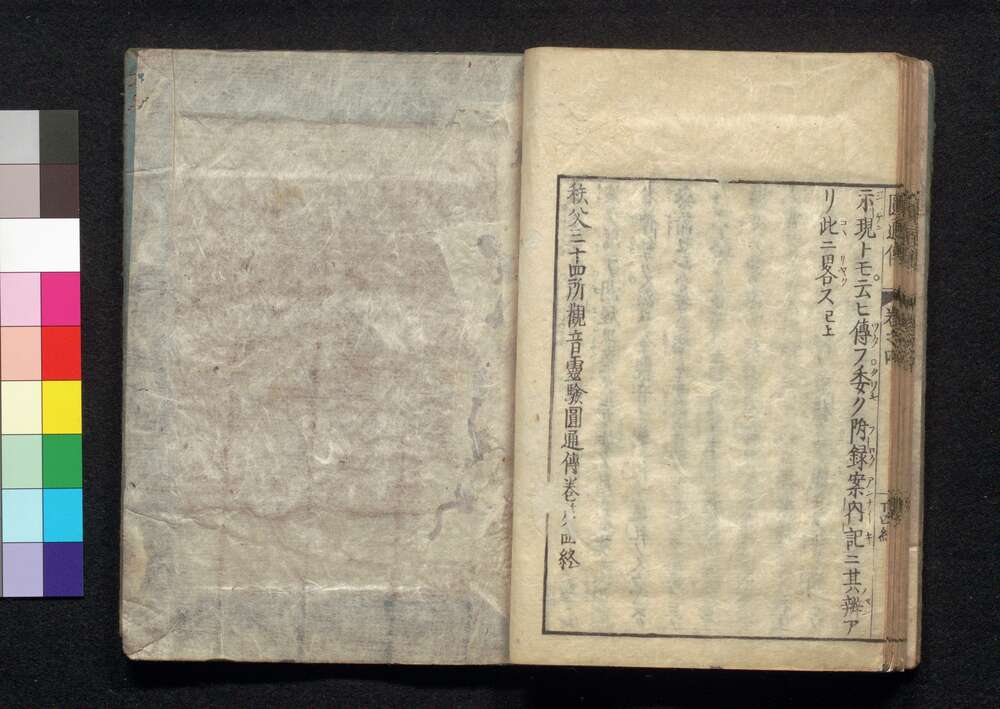 示現トモ云ヒ傳フ委ク附録案内記ニ其辨ア
リ此ニ畧ス已上
秩父三十四所觀音靈驗圓通傳卷之四終
圓通傳 卷之四